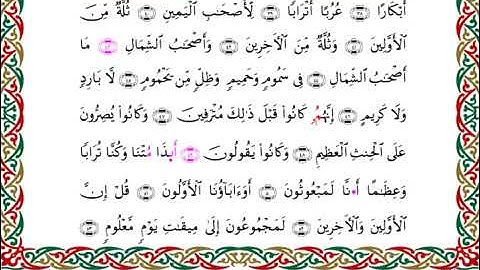 أَبْكَارًا عُرُبًا أَتْرَابًا لِّأَصْحَٰبِ ٱلْيَمِينِ ثُلَّةٌ مِّنَ
ٱلْأَوَّلِينَ وَثُلَّةٌ مِّنَ ٱلْأَخِرِينَ وَأَصْحَٰبُ ٱلشِّمَالِ مَا
أَصْحَٰبُ ٱلشِّمَالِ فِى سَمُومٍ وَحَمِيمٍ وَظِلٍّ مِّن يَحْمُومٍ لَّا بَارِدٍ
وَلَا كَرِيمٍ إِنَّهُمُۥ كَانُوا۟ قَبْلَ ذَٰلِكَ مُتْرَفِينَ وَكَانُوا۟ يُصِرُّونَ
عَلَى ٱلْحِنثِ ٱلْعَظِيمِ وَكَانُوا۟ يَقُولُونَ أَىِذَا مُتْنَا وَكُنَّا تُرَابًا
وَعِظَٰمًا أَ•نَّا لَمَبْعُوثُونَ أَوَءَابَآؤُنَا ٱلْأَوَّلُونَ قُلْ إِنَّ
ٱلْأَوَّلِينَ وَٱلْأَخِرِينَ لَمَجْمُوعُونَ إِلَىٰ مِيقَٰتِ يَوْمٍ مَّعْلُومٍ